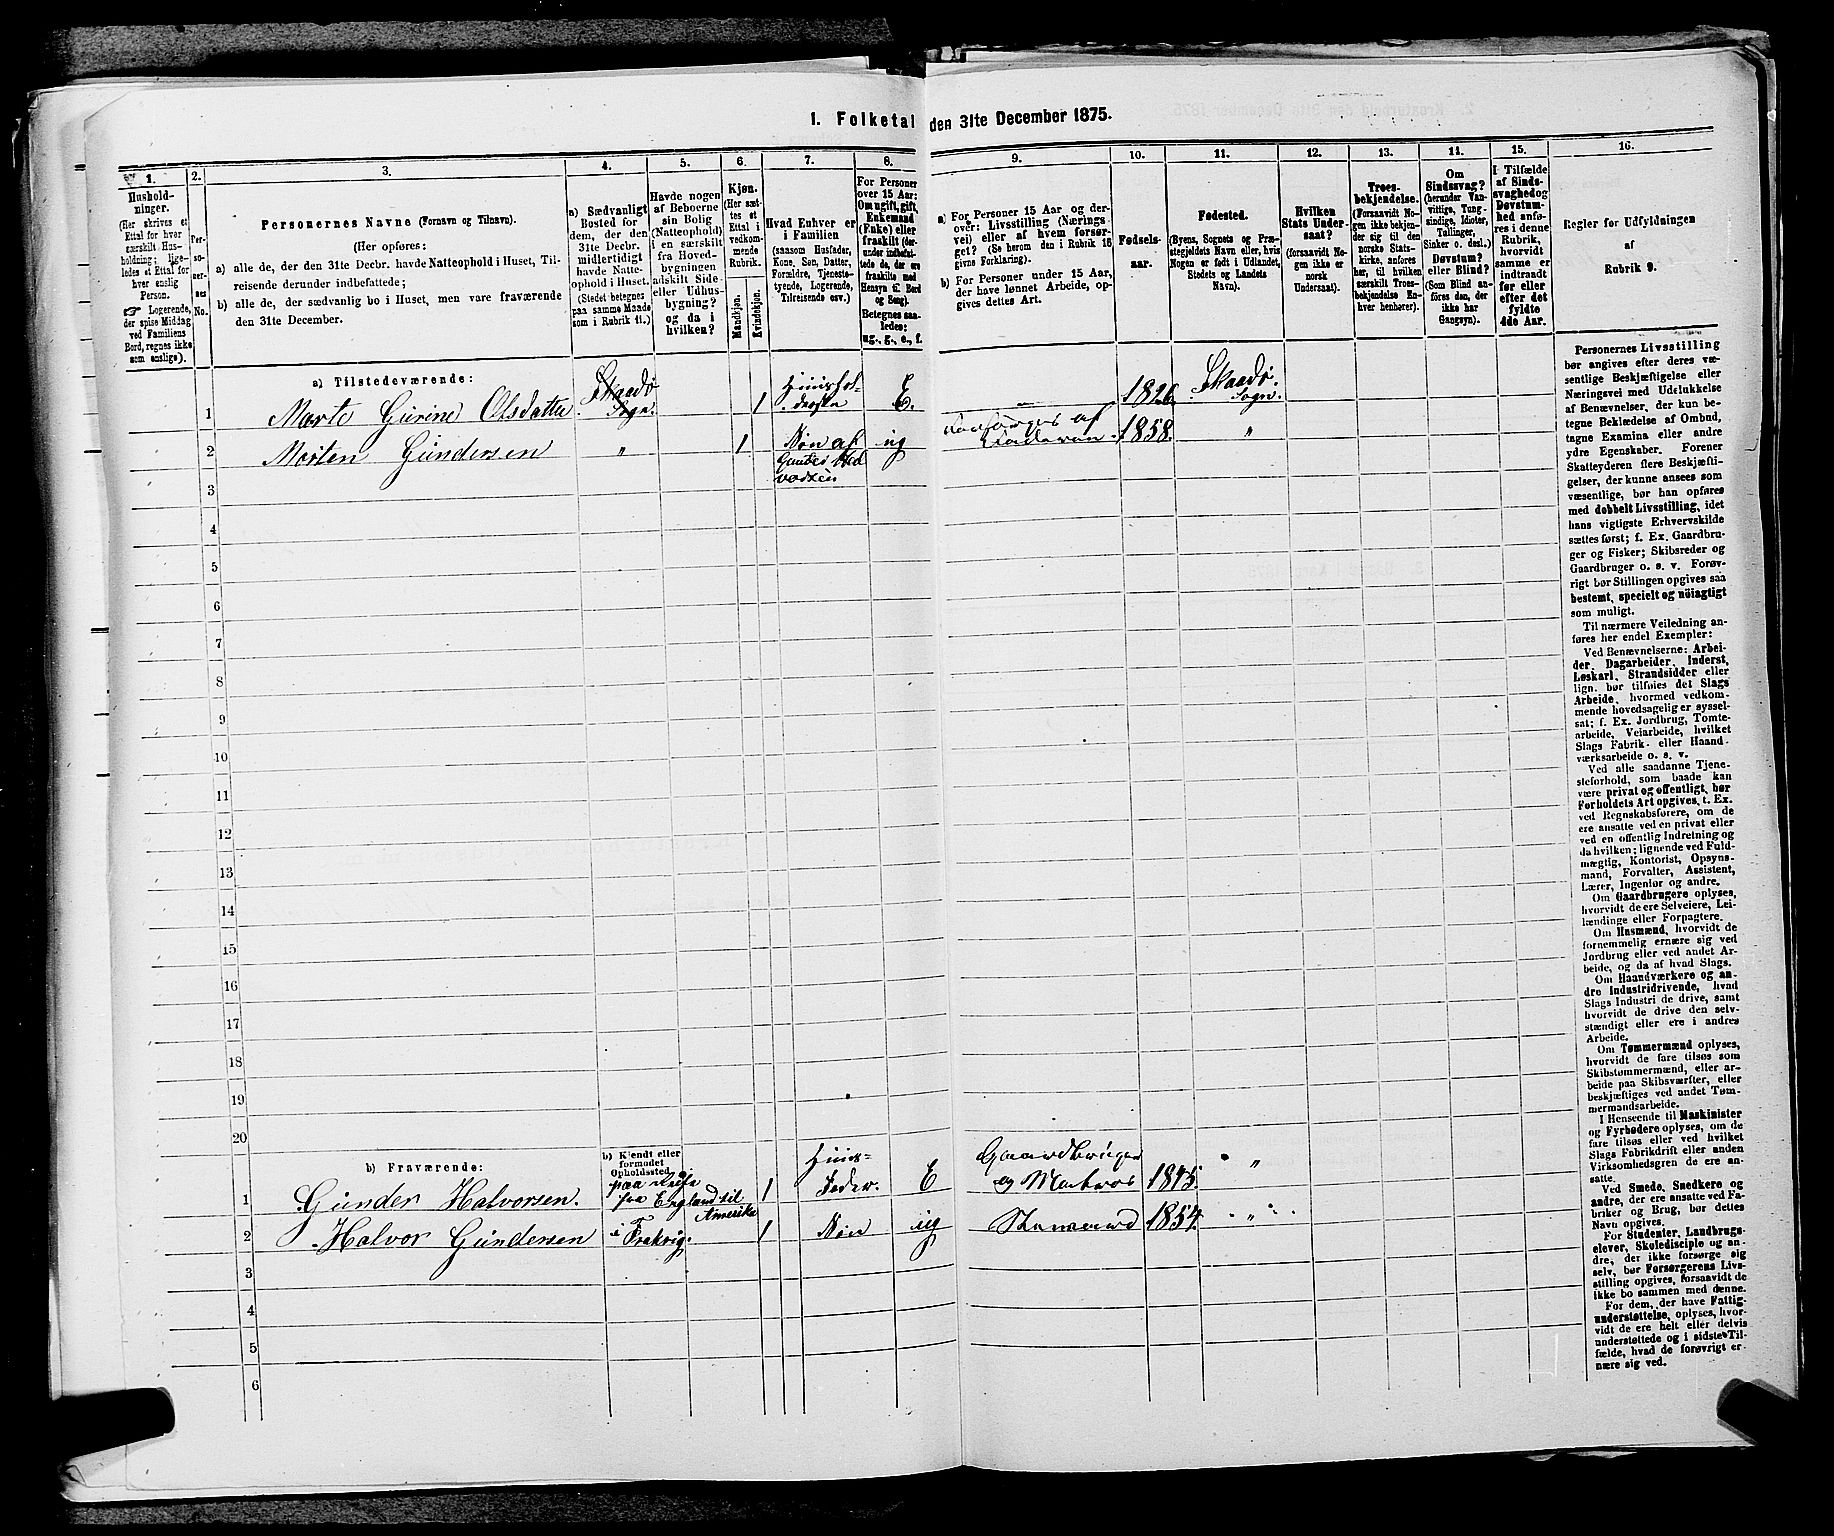 1. Folketal den 31te December 1875.
1.
Hushold-
ninger.
(Her skrives et
Ettal for hver
særskilt Hus-
holdning; lige-
ledes et Ettal for
hver enslig
Person.
☞ Logerende,
der spise Middag
ved Familiens
Bord, regnes ikke
som enslige).
2.
Per-
soner-
nes
No.
3.
Personernes Navne (Fornavn og Tilnavn).
(Her opføres:
a) alle de, der den 31te Decbr. havde Natteophold i Huset, Til-
reisende derunder indbefattede;
b) alle de, der sædvanlig bo i Huset, men vare fraværende
den 31te December.
4.
a) Sædvanligt
Bosted for
dem, der den
31te Decbr.
midlertidigt
havde Natte-
ophold i Huset.
(Stedet betegnes
paa samme Maade
som i Rubrik 11.)
5.
Havde nogen
af Beboerne
sin Bolig
(Natteophold)
i en særskilt
fra Hoved-
bygningen
adskilt Side-
eller Udhus-
bygning?
og da i
hvilken?
6.
Kjøn.
(Her sæt-
tes et
Ettal i
vedkom-
mende
Rubrik.
Mandkjøn.
Kvindekjøn.
7.
Hvad Enhver er
i Familien
(saasom Husfader,
Kone, Søn, Datter,
Forældre, Tjeneste-
tyende, Logerende,
Tilreisende osv.)
8.
For Personer
over 15 Aar:
Om ugift, gift,
Enkemand
(Enke) eller
fraskilt (der-
under indbefat-
tede de, der ere
fraskilte med
Hensyn til Bord
og Seng).
Betegnes saa-
ledes:
ug., g., e., f.
9.
a) For Personer 15 Aar og der-
over: Livsstilling (Nærings-
vei) eller af hvem forsør-
get? (Se herom den i Rubrik 16
givne Forklaring).
b) For Personer under 15 Aar,
der have lønnet Arbeide, op-
gives dettes Art.
10.
Fødsels-
aar.
11.
Fødested.
(Byens, Sognets og Præ-
stegjeldets Navn eller, hvis
Nogen er født i Udlandet,
Stedets og Landets
Navn).
12.
Hvilken
Stats Under-
saat?
(forsaavidt No-
gen ikke er
norsk
Undersaat).
13.
Troes-
bekjendelse.
(Forsaavidt No-
gen ikke bekjen-
der sig til den
norske Stats-
kirke, anføres
her, til hvilken
særskilt Troes-
bekjendelse En-
hver henhører).
14.
Om
Sindssvag?
(herunder Van-
vittige, Tung-
sindige, Idioter,
Tullinger,
Sinker o. desl.)
Døvstum?
eller Blind?
(Som Blind an-
føres den, der
ikke har
Gangsyn).
15.
I Tilfælde
af Sinds-
svaghed og
Døvstum-
hed anfø-
res i denne
Rubrik,
hvorvidt
samme er
indtraadt
før eller
efter det
fyldte
4de Aar.
16.
Regler for Udfyldningen
af
Rubrik 9.
a) Tilstedeværende:
1 Marte Gurine Olsdatter Skaadø Sogn. 1 Huusfor- E. „ 1826. Skaadø
Sogn.
2 Morten Gundersen „ 1 Søn af ug Forsørges af 1858. „
Faderen
3
4
5
6
7
8
9
10
11
12
13
14
15
16
17
18
19
20
b) Fraværende:
b) Kjendt eller
formodet
Opholdssted.
1 Gunder Halvorsen. paa Reise fra England til Amerika 1 Huus- fader. E Gaardbruger og Matros 1815. „
2 Halvor Gundersen i Frakrig. 1 Søn ug 1854. „
3
4
5
6
Personernes Livsstilling
bør angives efter deres væ-
sentlige Beskjæftigelse eller
Næringsvei med Udelukkelse
af Benævnelser, der kun be-
tegne Beklædelse af Ombud,
tagne Examina eller andre
ydre Egenskaber. Forener
Skatteyderen flere Beskjæfti-
gelser, der kunne ansees som
væsentlige, bør han opføres
med dobbelt Livsstilling, idet
hans vigtigste Erhvervskilde
sættes først; f. Ex. Gaardbru-
ger og Fisker; Skibsreder og
Gaardbruger o. s. v. Forøv-
rigt bør Stillingen opgives saa
bestemt, specielt og nøiagtigt
som muligt.
Til nærmere Veiledning an-
føres her endel Exempler:
Ved Benævnelserne: Arbei-
der, Dagarbeider, Inderst,
Løskarl, Strandsidder eller
lign. bør tilføies det Slags
Arbeide, hvormed vedkom-
mende hovedsagelig er syssel-
sat; f. Ex. Jordbrug, Tomte-
arbeide, Veiarbeide, hvilket
Slags Fabrik- eller Haand-
værksarbeide o. s. v.
Ved alle saadanne Tjene-
steforhold, som baade kan
være privat og offentligt, bør
Forholdets Art opgives, t. Ex.
ved Regnskabsførere, om de
ere ansatte ved en privat eller
ved en offentlig Indretning og
da hvilken; lignende ved Fuld-
mægtig, Kontorist, Opsyns-
mand, Forvalter, Assistent,
Lærer, Ingeniør og andre.
Om Gaardbrugere oplyses,
hvorvidt de ere Selveiere, Lei-
lændinge eller Forpagtere.
Om Husmænd, hvorvidt de
fornemmelig ernære sig ved
Jordbrug eller ved andet Ar-
beide, og da af hvad Slags.
Om Haandværkere og an-
dre Industridrivende, hvad
Slags Industri de drive, samt
hvorvidt de drive den selv-
stændigt eller ere i andres
Arbeide.
Om Tømmermænd oplyses,
hvorvidt de fare tilsøs som
Skibstømmermænd, eller ar-
beide paa Skibsværfter, eller
beskjæftiges ved andet Tøm-
mermandsarbeide.
I Henseende til Maskinister
og Fyrbødere oplyses, om de
fare tilsøs eller ved hvilket
Slags Fabrikdrift eller anden
Virksomhedsgren de ere an-
satte.
Ved Smede, Snedkere og
andre, der ere ansatte ved Fa-
briker og Brug, bør dettes
Navn opgives.
For Studenter, Landbrugs-
elever, Skoledisciple og an-
dre, der ikke forsørge sig
selv, bør Forsørgerens Livs-
stilling opgives, forsaavidt de
ikke bo sammen med denne.
For dem, der have Fattig-
understøttelse, oplyses, hvor-
vidt de ere helt eller delvis
understøttede og i sidste Til-
fælde, hvad de forøvrigt er-
nære sig ved.